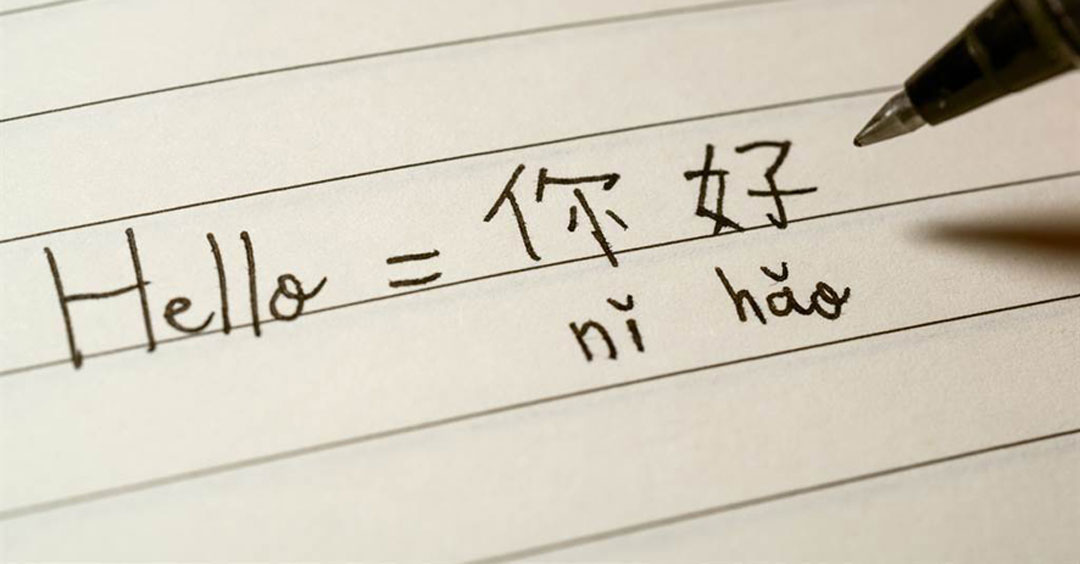 Hello = 你好
nǐ hǎo